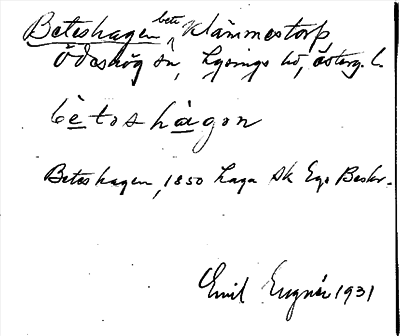 Beteshagen, bete, Klämmestorp
Ödeshög sn, Lysings hd, Österg. l.
bètoshàgon
Beteshagen, 1850 Laga Sk Ego Beskr.
Emil Eugnér 1931